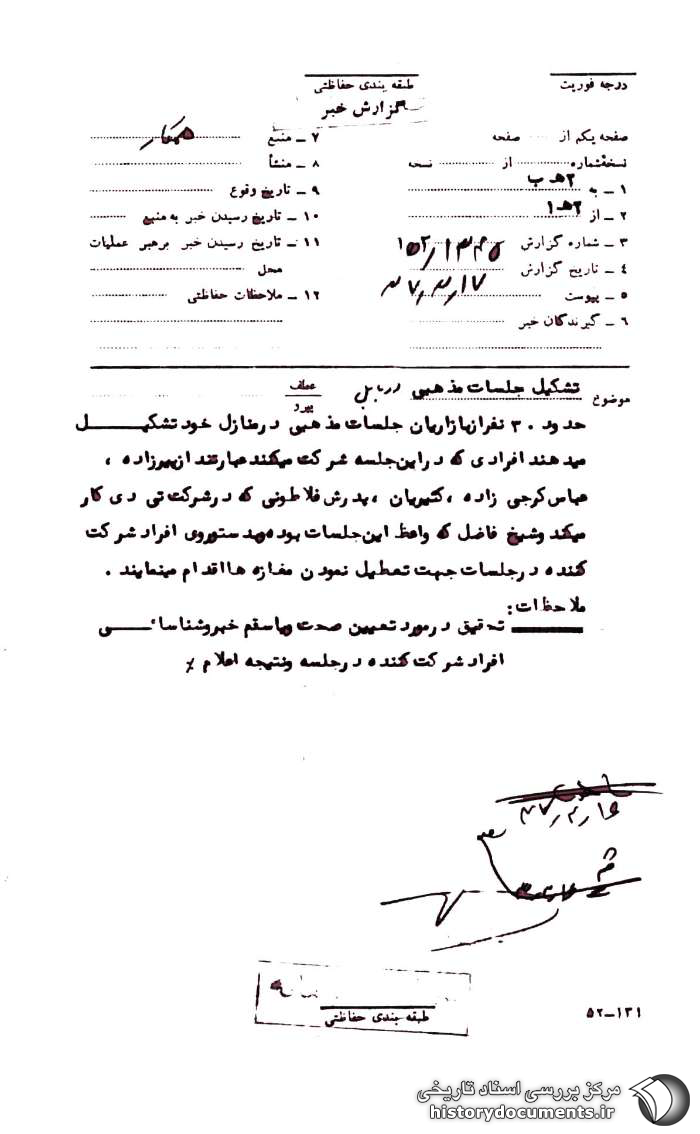 درجه فوریت
طبقه بندی حفاظتی
گزارش خبر
صفحه یکم از ........ صفحه
نسخه شماره ........ از ........ نسخه
۱ – به ۲ هـ ب
۲ – از ۲ هـ ۱
۳ – شماره گزارش
۴ – تاریخ گزارش ۴۷٫۳٫۱۷
۵ – پیوست
۶ – گیرندگان خبر
۷ – منبع همکار
۸ – منشأ
۹ – تاریخ وقوع
۱۰ – تاریخ رسیدن خبر به منبع
۱۱ – تاریخ رسیدن خبر برهبر عملیات
محل
۱۲ – ملاحظات حفاظتی
موضوع تشکیل جلسات مذهبی در بابل عطف
پیرو
حدود ۳۰ نفر از بازاریان جلسات مذهبی در منازل خود تشکیل
میدهند افرادی که در این جلسه شرکت میکنند عبارتند از بهرزاده ،
عباس کرجی زاده ، کثیریان ، پدرش فلاطونی که در شرکت تی دی کار
میکند و شیخ فاضل که واعظ این جلسات بوده و بدستور وی افراد شرکت
کننده در جلسات جهت تعطیل نمودن مغازه ها اقدام مینمایند .
ملاحظات :
تحقیق در مورد تعیین صحت و یا سقم خبر و شناسائی
افراد شرکت کننده در جلسه و نتیجه اعلام ٪
طبقه بندی حفاظتی
۵۲–۱۳۱
مرکز بررسی اسناد تاریخی
historydocuments.ir